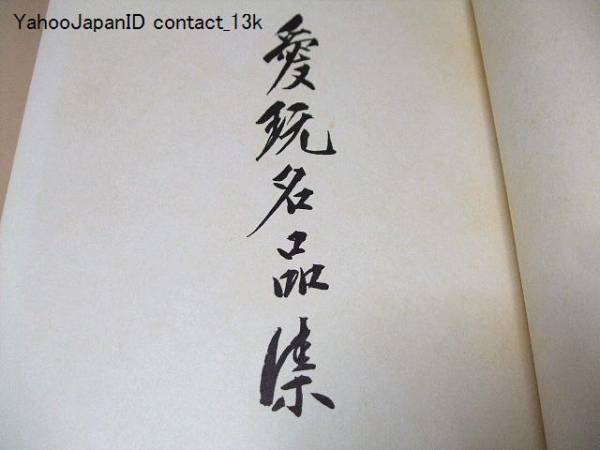 YahooJapanID contact_13k
愛玩名品集